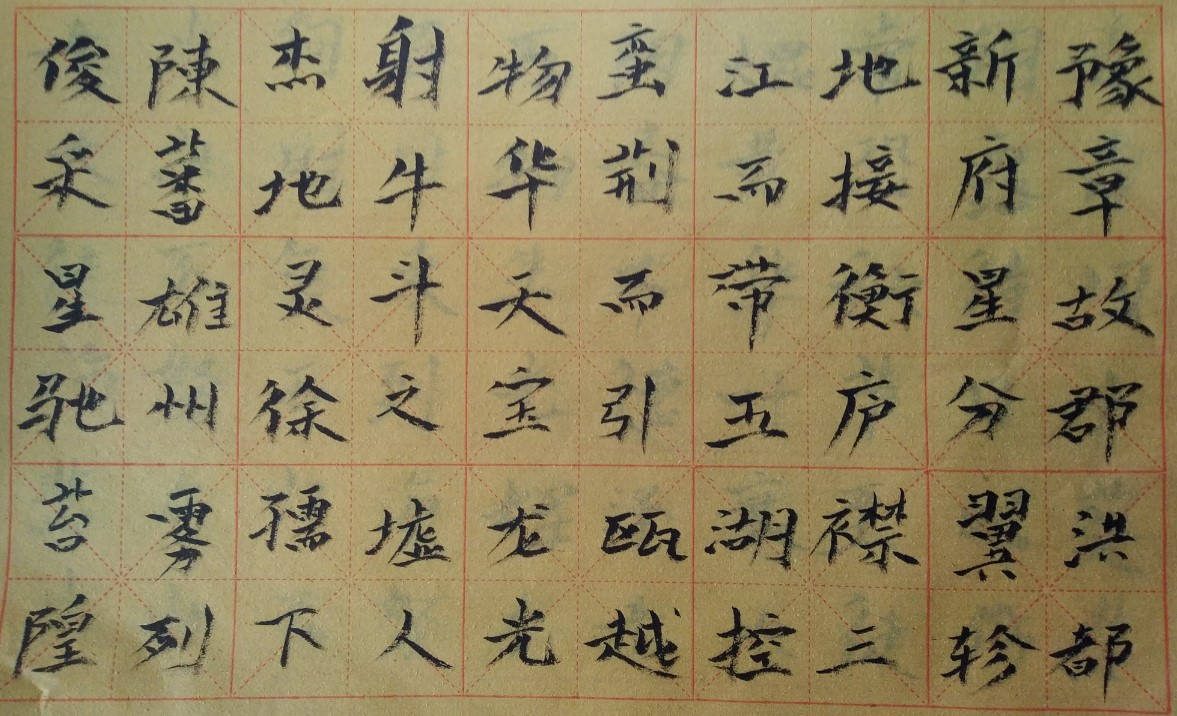 豫章故郡洪都
新府星分翼轸
地接衡庐襟三
江而带五湖控
蛮荆而引瓯越
物华天宝龙光
射牛斗之墟人
杰地灵徐孺下
陳蕃雄州雾列
俊采星驰苔隍